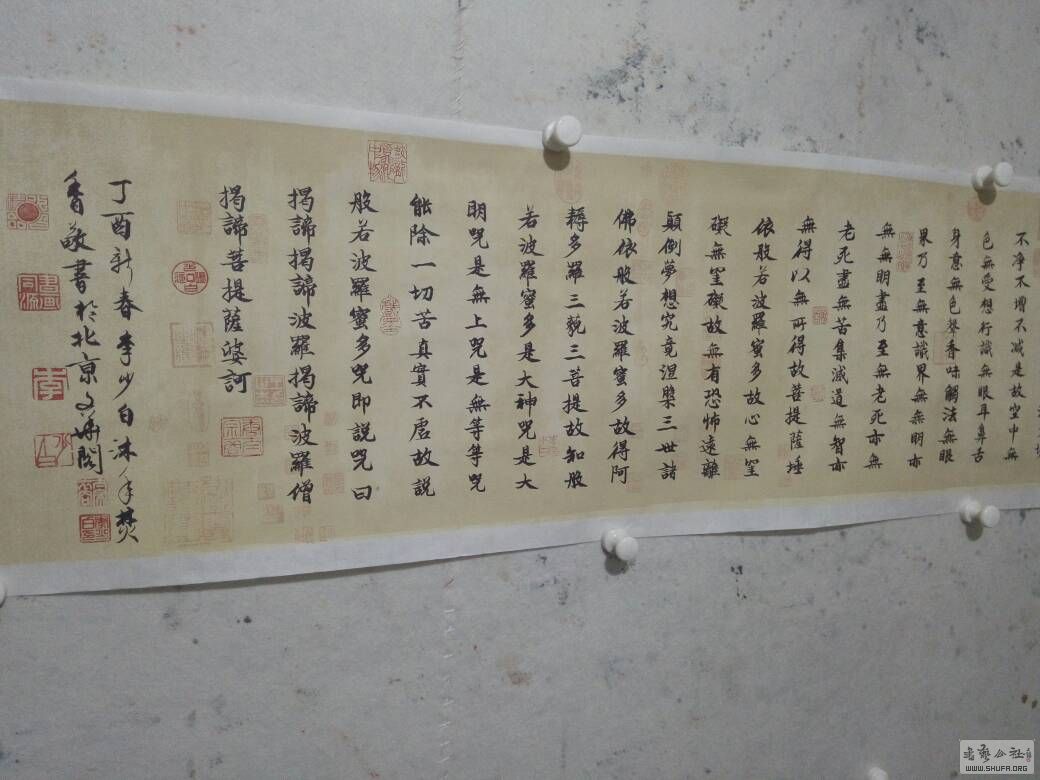 不淨不增不減是故空中無
色無受想行識無眼耳鼻舌
身意無色聲香味觸法無眼
界乃至無意識界無無明亦
無無明盡乃至無老死亦無
老死盡無苦集滅道無智亦
無得以無所得故菩提薩埵
依般若波羅蜜多故心無罣
礙無罣礙故無有恐怖遠離
顛倒夢想究竟涅槃三世諸
佛依般若波羅蜜多故得阿
耨多羅三藐三菩提故知般
若波羅蜜多是大神咒是大
明咒是無上咒是無等等咒
能除一切苦真實不虛故說
般若波羅蜜多咒即說咒曰
揭諦揭諦波羅揭諦波羅僧
揭諦菩提薩婆訶
丁酉新春李少白沐手焚
香敬書於北京文華閣
李
書畫同源
書藝公社
WWW.SHUFA.ORG